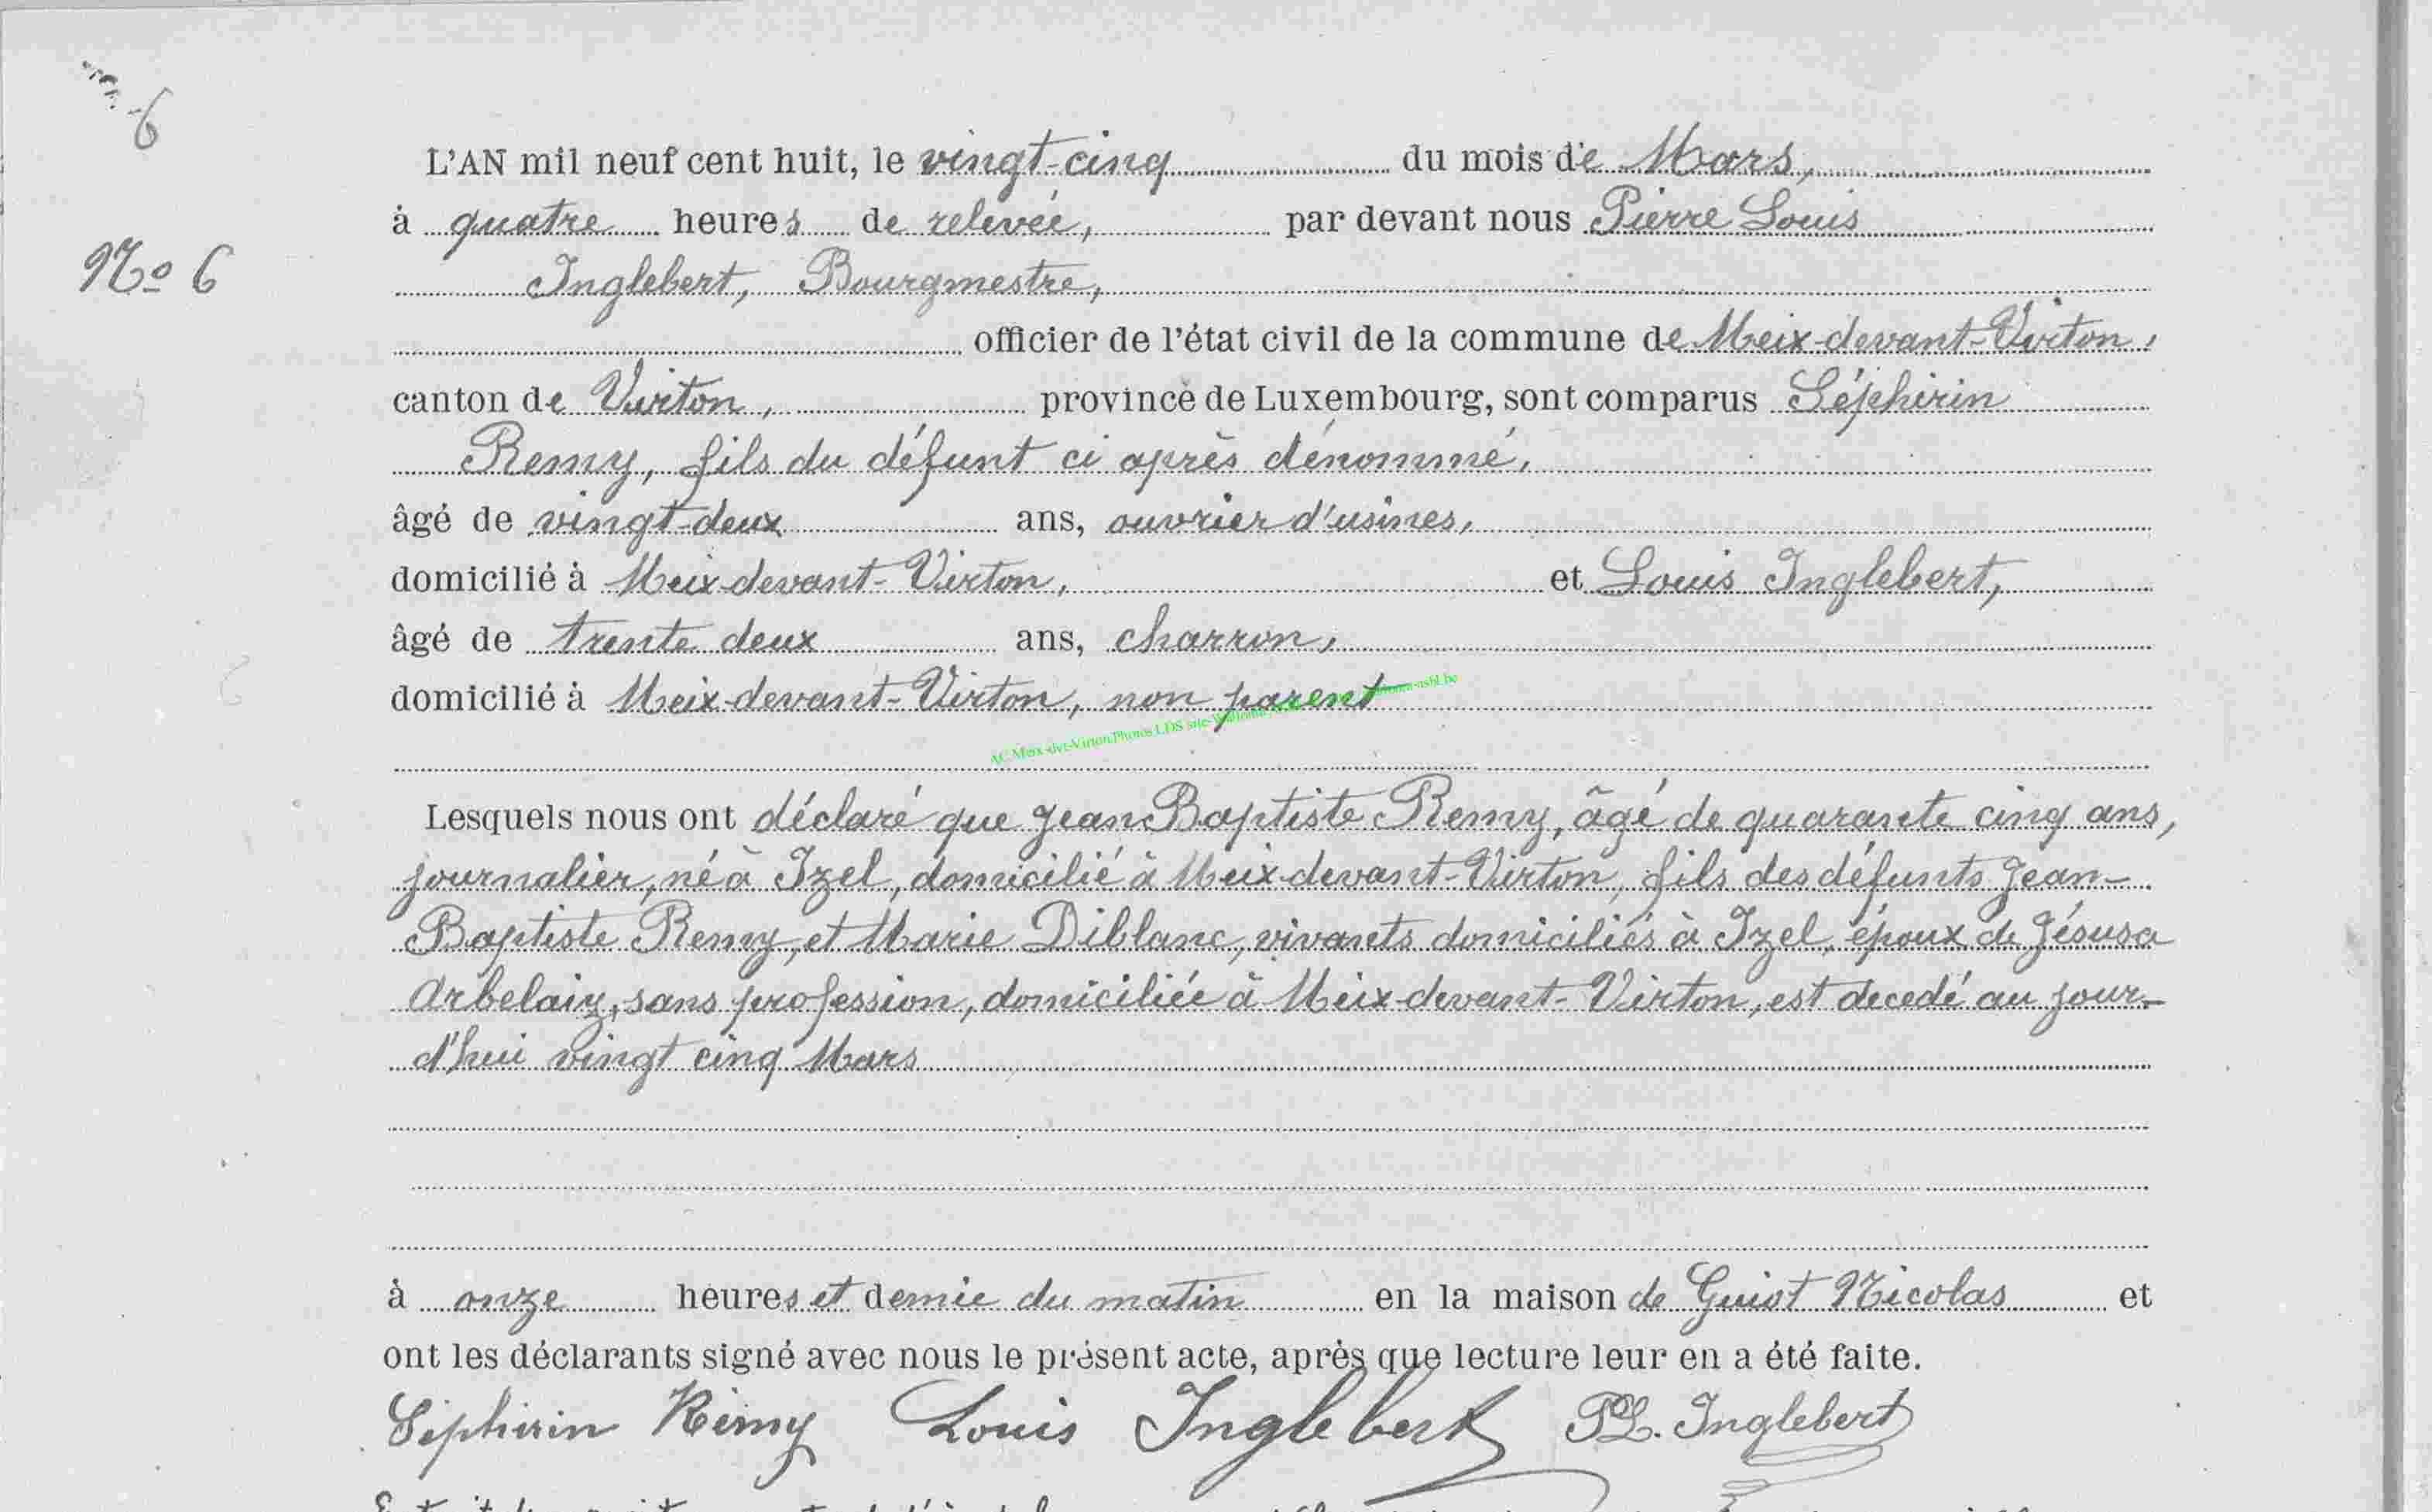 6
L'AN mil neuf cent huit, le vingt-cinq du mois de Mars,
à quatre heures de relevée, par devant nous Pierre Louis
Nº 6
Inglebert, Bourgmestre,
officier de l'état civil de la commune de Meix-devant-Virton,
canton de Virton, province de Luxembourg, sont comparus Séphirin
Remy, fils du défunt ci après dénommé,
âgé de vingt-deux ans, ouvrier d'usines,
domicilié à Meix-devant-Virton, et Louis Inglebert,
âgé de trente deux ans, charron,
domicilié à Meix-devant-Virton, non parent
AC Meix-dvt-Virton Photos LDS site
Lesquels nous ont déclaré que Jean Baptiste Remy, âgé de quarante cinq ans,
journalier, né à Izel, domicilié à Meix-devant-Virton, fils des défunts Jean-
Baptiste Remy, et Marie Diblanc, vivants domiciliés à Izel, époux de Jésusa
Arbelaiz, sans profession, domiciliée à Meix-devant-Virton, est decedé au jour-
d'hui vingt cinq Mars
à onze heures et demie du matin en la maison de Guiot Nicolas et
ont les déclarants signé avec nous le présent acte, après que lecture leur en a été faite.
Séphirin Rémy Louis Inglebert PL. Inglebert